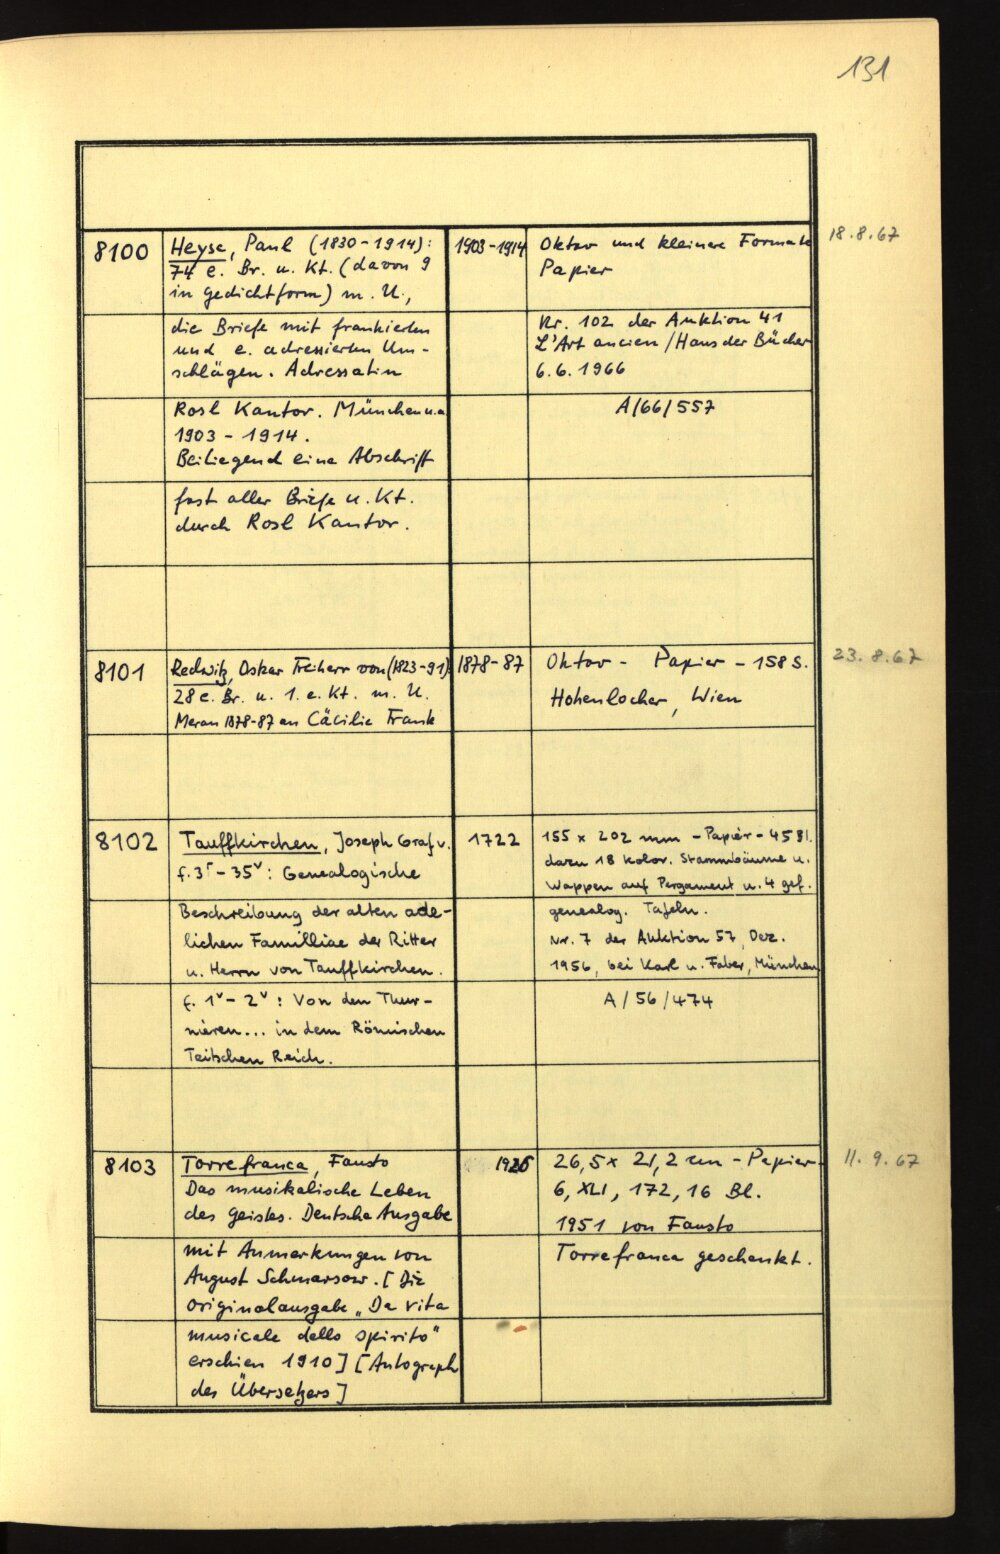 131
8100
Heyse, Paul (1830-1914):
74 e. Br. u. Kt. (davon 9
in Gedichtform) m. U.,
die Briefe mit frankierten
und e. adressierten Um-
schlägen. Adressatin
Rosl Kantor. München u.a.
1903 - 1914.
Beiliegend eine Abschrift
fast aller Briefe u. Kt.
durch Rosl Kantor.
1903-1914
Oktav und kleinere Formate
Papier
Nr. 102 der Auktion 41
L'Art ancien / Haus der Bücher
6.6.1966
A/66/557
18.8.67
8101
Redwitz, Oskar Freiherr von (1823-91)
28 e. Br. u. 1. e. Kt. m. U.
Meran 1878-87 an Cäcilie Frank
1878-87
Oktav - Papier - 158 S.
Hohenlocher, Wien
23.8.67
8102
Tauffkirchen, Joseph Graf v.
f. 3r - 35v : Genealogische
Beschreibung der alten ade-
lichen Familliae der Ritter
u. Herrn von Tauffkirchen.
f. 1v - 2v : Von den Thur-
nieren... in dem Römischen
Teitschen Reich.
1722
155 x 202 mm - Papier - 45 Bl.
dazu 18 kolor. Stammbäume u.
Wappen auf Pergament u. 4 gef.
genealog. Tafeln.
Nr. 7 der Auktion 57, Dez.
1956, bei Karl u. Faber, München
A/56/474
8103
Torrefranca, Fausto
Das musikalische Leben
des Geistes. Deutsche Ausgabe
mit Anmerkungen von
August Schmarsow. [Die
Originalausgabe „Da vita
musicale dello spirito"
erschien 1910] [Autograph
des Übersetzers]
1926
26,5 x 21,2 cm - Papier -
6, XLI, 172, 16 Bl.
1951 von Fausto
Torrefranca geschenkt.
11.9.67